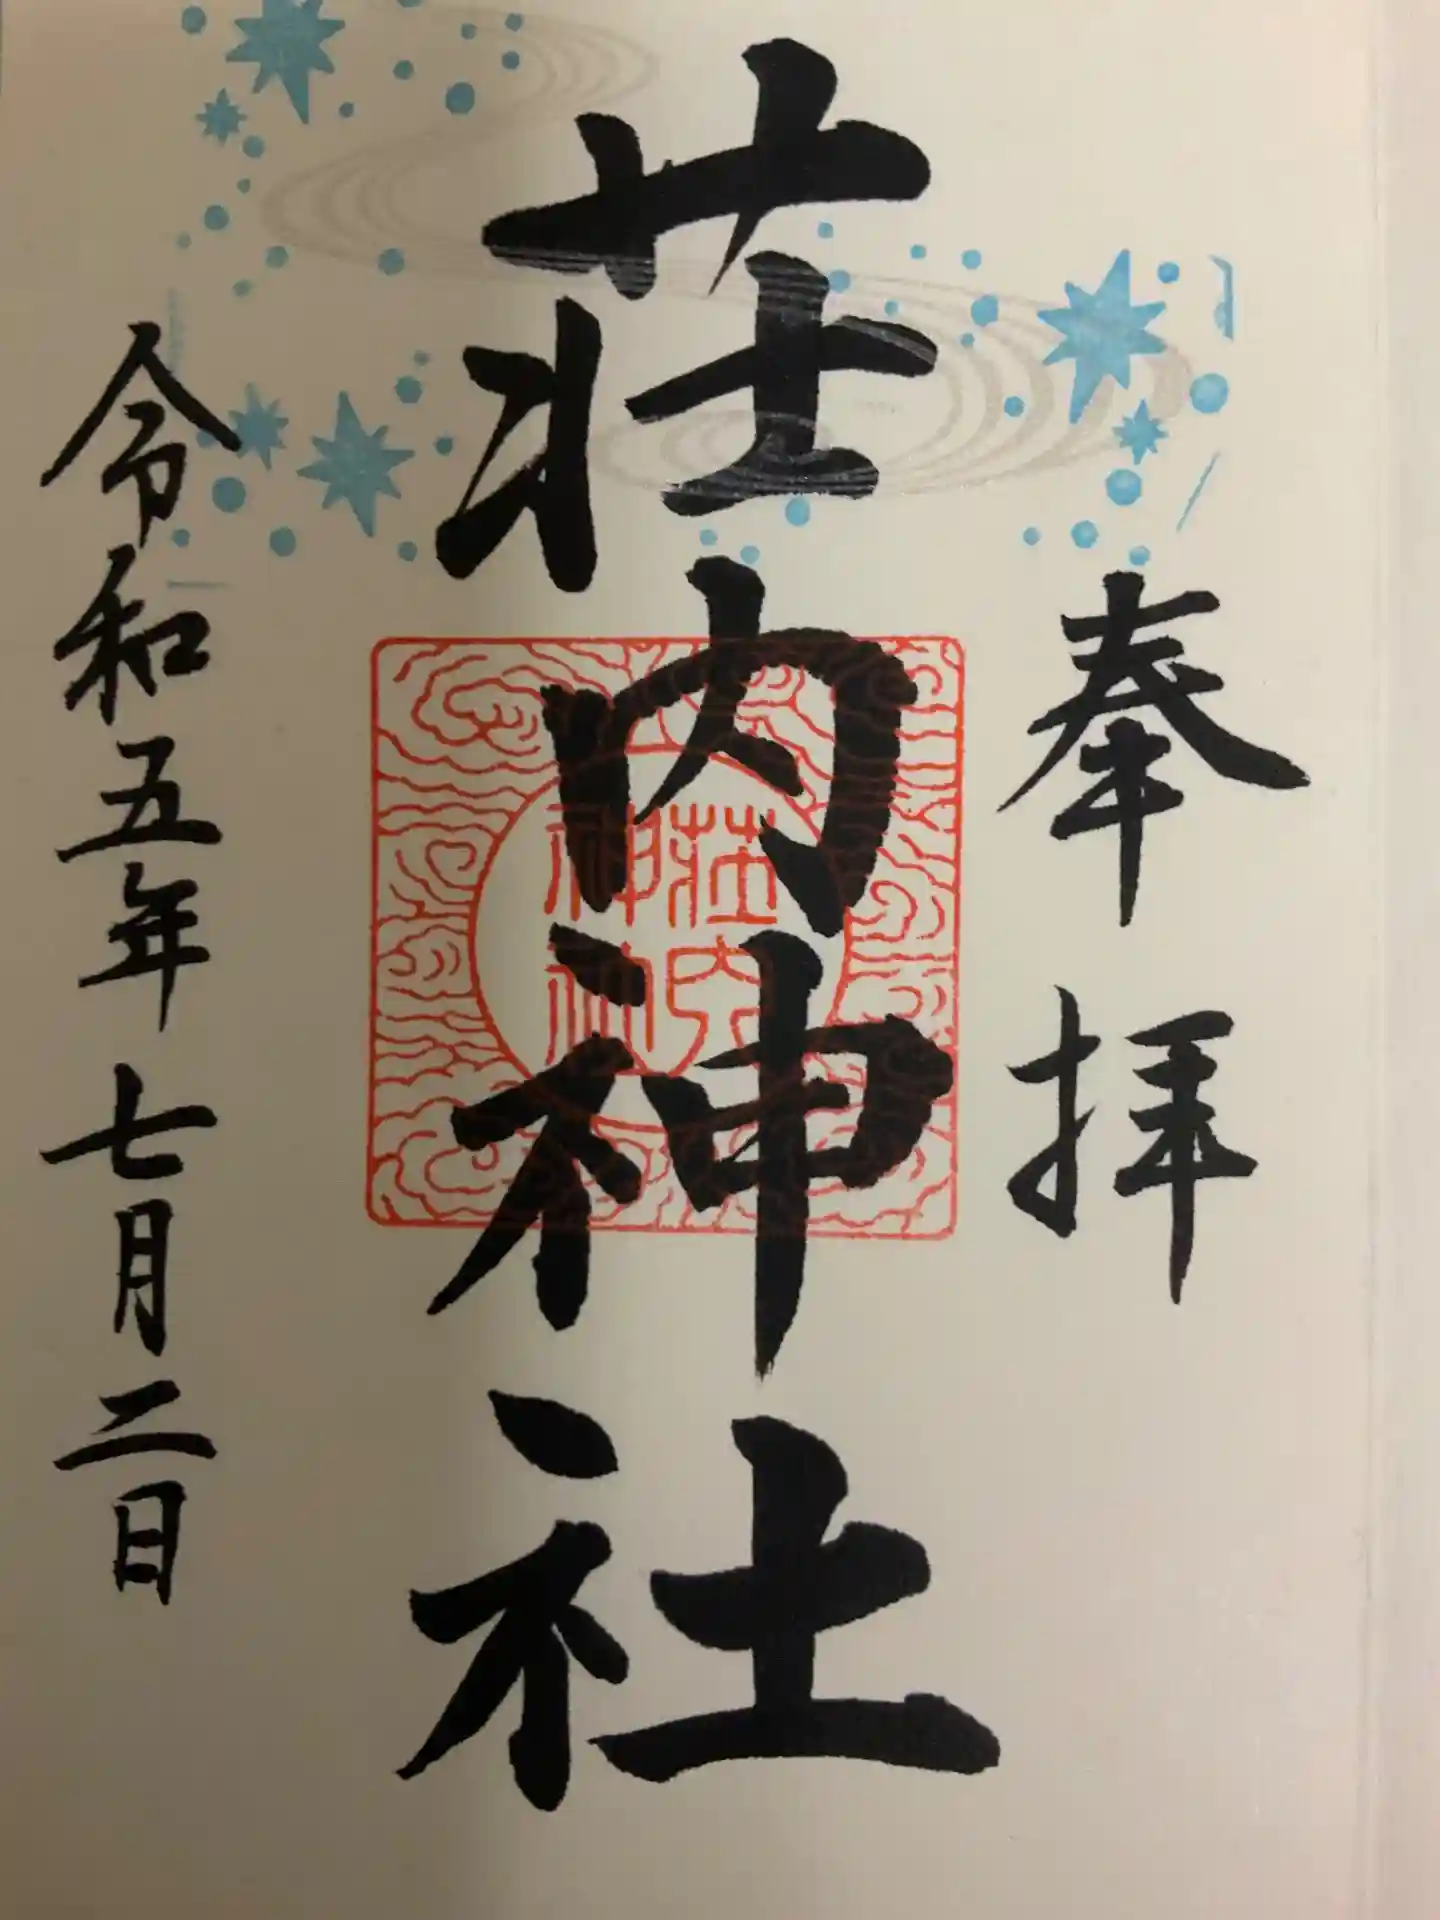 奉拝
荘内神社
荘内
神社
令和五年七月二日